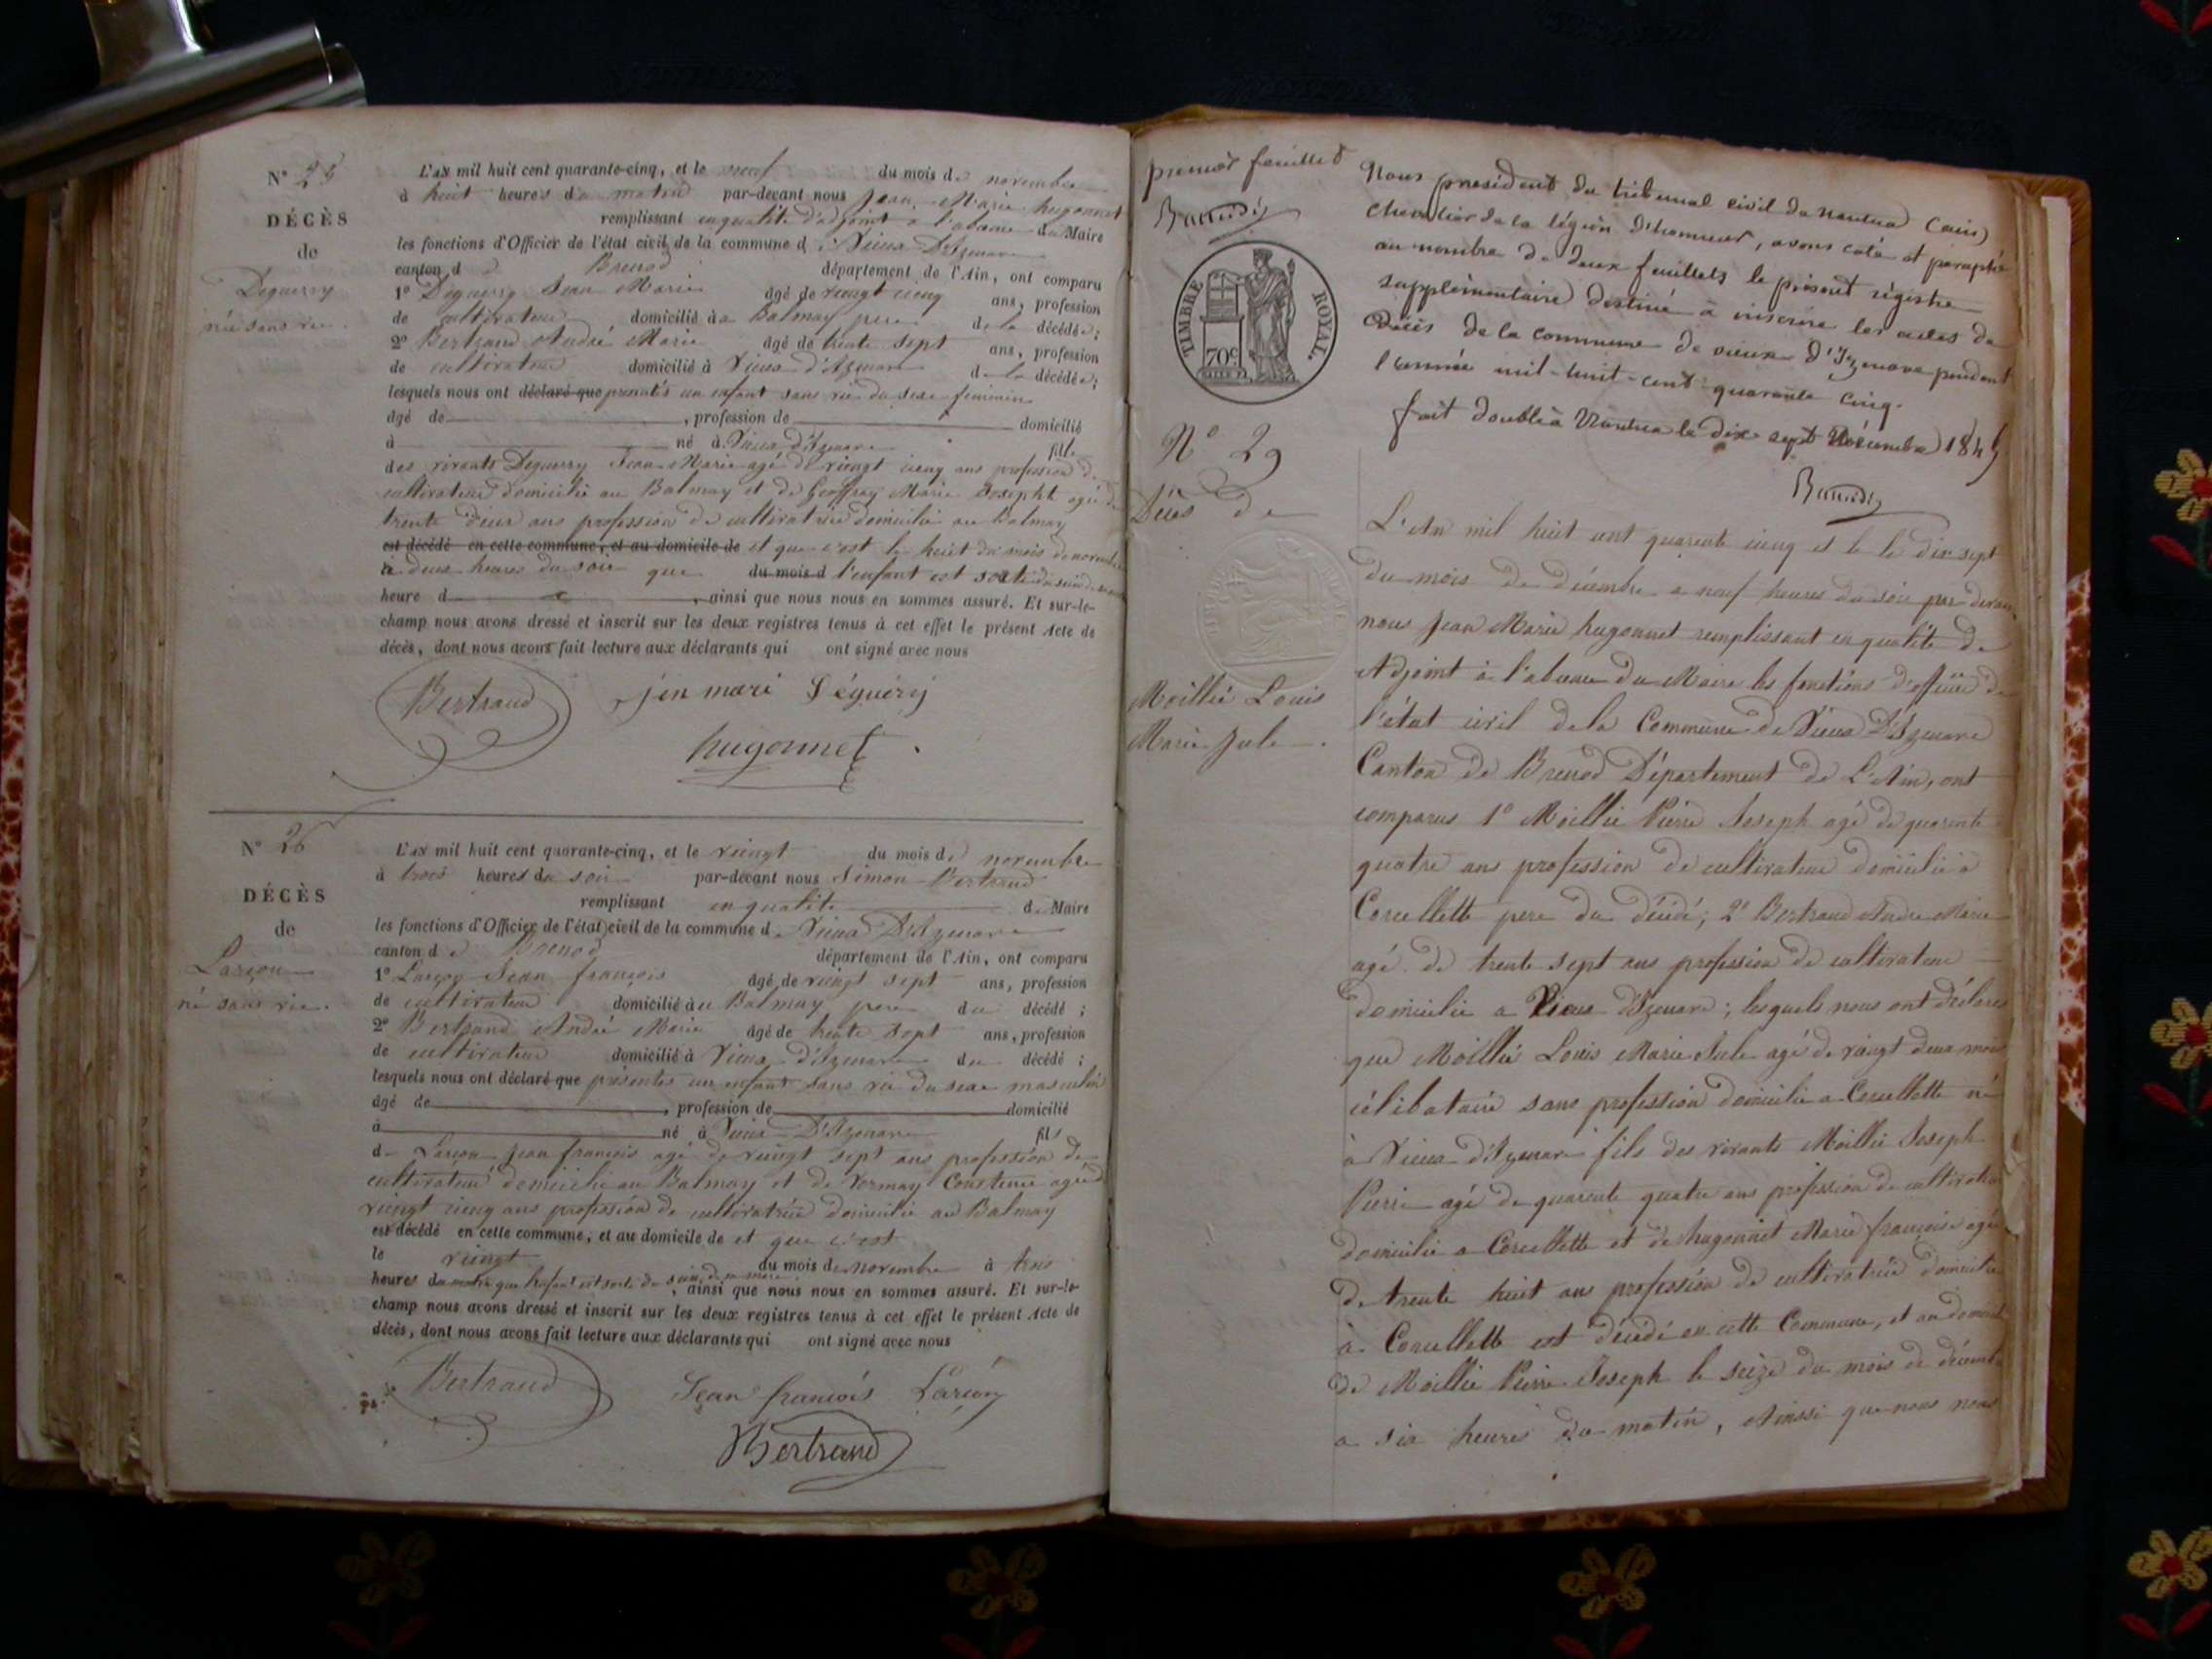 N° 25
DÉCÈS
de
Deguerry
née sans vie.
L'AN mil huit cent quarante-cinq, et le neuf du mois de novembre
à huit heures du matin par-devant nous Jean Marie hugonnet
remplissant en qualité d'adjoint a l'absence du Maire
les fonctions d'Officier de l'état civil de la commune de Vieux D'Izenave
canton de Brenod département de l'Ain, ont comparu
1° Deguerry Jean Marie âgé de vingt cinq ans, profession
de cultivateur domicilié au Balmay pere de la décédée;
2° Bertrand André Marie âgé de trente sept ans, profession
de cultivateur domicilié à Vieux d'Izenave de la décédée;
lesquels nous ont déclaré que présentés un enfant sans vie du sexe feminin
âgé de , profession de domicilié
à né à Vieux d'Izenave fille
des vivants Deguerry Jean Marie agé de vingt cinq ans profession de
cultivateur domicilié au Balmay et de Geoffray Marie Josepht agée de
trente deux ans profession de cultivatrice domiciliée au Balmay
est décédé en cette commune, et au domicile de et que c'est le huit du mois de novembre
à deux heures du soir que du mois d l'enfant est sortie du sein de sa
heure d , ainsi que nous nous en sommes assuré. Et sur-le-
champ nous avons dressé et inscrit sur les deux registres tenus à cet effet le présent Acte de
décès, dont nous avons fait lecture aux déclarants qui ont signé avec nous
Bertrand jen mari Déguérij
hugonnet
N° 26
DÉCÈS
de
Larçon
né sans vie.
L'AN mil huit cent quarante-cinq, et le vingt du mois de novembre
à trois heures du soir par-devant nous Simon Bertrand
remplissant en qualité de Maire
les fonctions d'Officier de l'état civil de la commune de Vieux D'Izenave
canton de Brenod département de l'Ain, ont comparu
1° Larçon Jean françois âgé de vingt sept ans, profession
de cultivateur domicilié au Balmay pere du décédé;
2° Bertrand André Marie âgé de trente sept ans, profession
de cultivateur domicilié à Vieux d'Izenave du décédé;
lesquels nous ont déclaré que présentés un enfant sans vie du sexe masculin
âgé de , profession de domicilié
à né à Vieux D'Izenave fils
de Larçon jean françois agé de vingt sept ans profession de
cultivateur domicilié au Balmay et de Constence agée de
vingt cinq ans profession de cultivatrice domiciliée au Balmay
est décédé en cette commune, et au domicile de et que c'est
le vingt du mois de novembre à trois
heures du matin que l'enfant est sorti du sein de sa mere, ainsi que nous nous en sommes assuré. Et sur-le-
champ nous avons dressé et inscrit sur les deux registres tenus à cet effet le présent Acte de
décès, dont nous avons fait lecture aux déclarants qui ont signé avec nous
Bertrand Jean françois Larçon
Bertrand
premier feuillet
TIMBRE ROYAL.
70c
Nous président du tribunal civil de nantua (ain)
chevalier de la légion d'honneur, avons coté et paraphé
au nombre de deux feuillets le présent régistre
supplémentaire destiné à inscrire les actes de
décès de la commune de vieux d'Izenave pendant
l'année mil-huit-cent-quarante cinq.
fait double à Nantua le dix sept décembre 1845
N° 29
Décès de
Moillié Louis
Marie Jule.
L'An mil huit cent quarente cinq et le le dix sept
du mois de décembre a neuf heures du soir par devant
nous Jean Marie hugonnet remplissant en qualité de
Adjoint à l'absence du Maire les fonctions d'officier de
l'état civil de la Commune de Vieux D'Izenave
Canton de Brenod Département de L'Ain, ont
comparus 1° Moillié Pierre Joseph agé de quarente
quatre ans profession de cultivateur domicilié à
Corcellette pere du décédé; 2° Bertrand Andre Marie
agé de trente sept ans profession de cultivateur
domicilié a Vieux d'Izenave; lesquels nous ont déclarés
que Moillié Louis Marie Jule agé de vingt deux mois
célibataire sans profession domicilié a Corcellette né
à Vieux d'Izenave fils des vivants Moillié Joseph
Pierre agé de quarente quatre ans profession de cultivateur
domicilié a Corcellette et de hugonnet Marie françoise agée
de trente huit ans profession de cultivatrice domiciliée
à Corcellette est décédé en cette Commune, et au domicile
de Moillié Pierre Joseph le seize du mois de décembre
a six heures du matin, Ainssi que nous nous